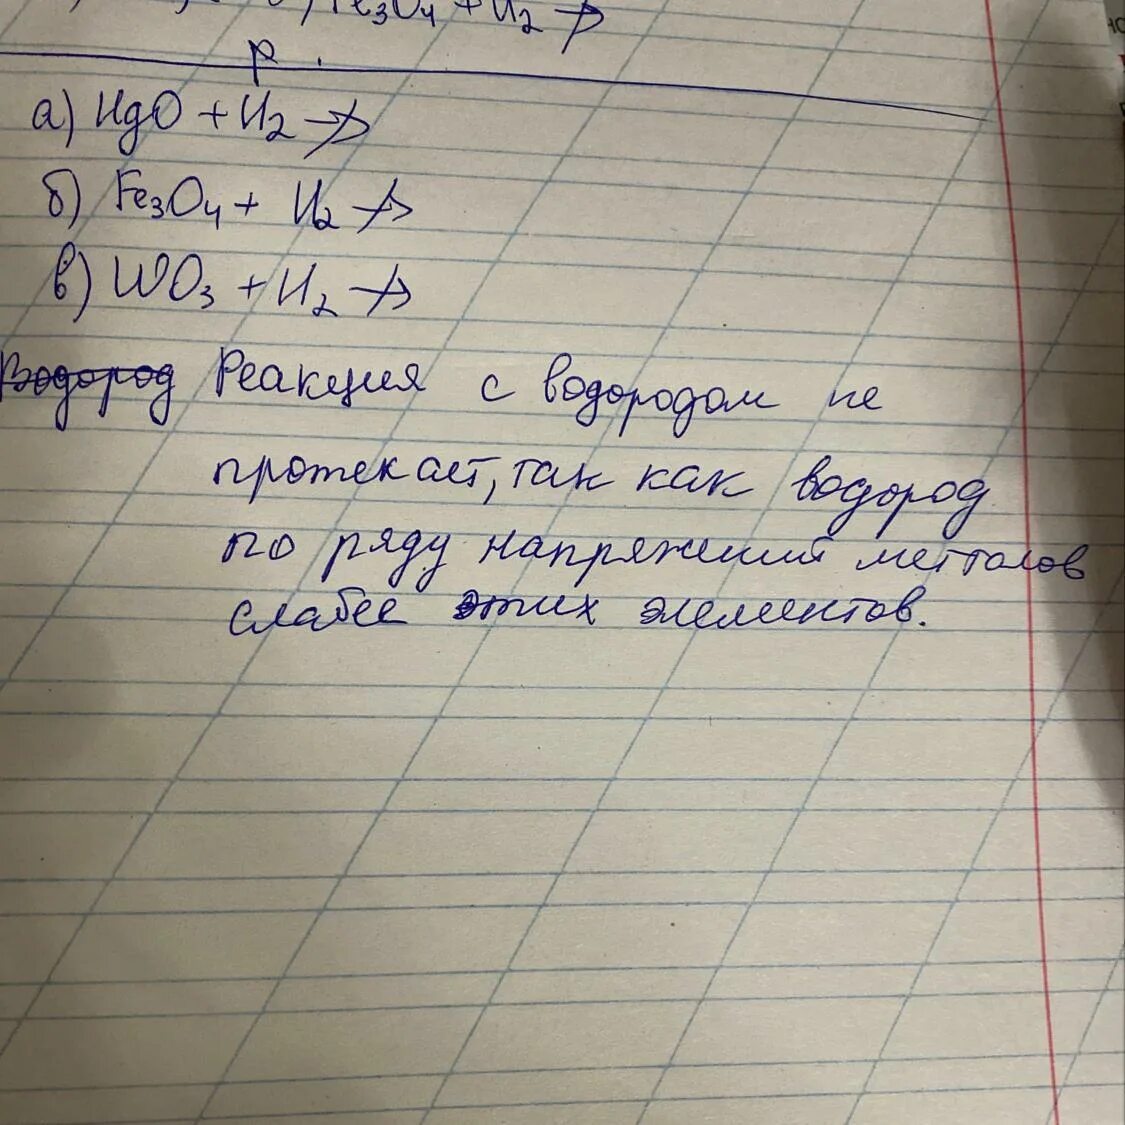 Fe₃O₄ + H₂ ↛
р.
а) HgO + H₂ ↛
б) Fe₃O₄ + H₂ ↛
в) WO₃ + H₂ ↛
Водород Реакция с водородом не
протекает, так как водород
по ряду напряжений метталов
слабее этих элементов.